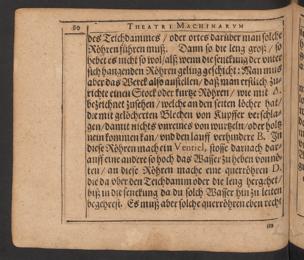 80 THEATRI MACHINARVM
des Teichdammes / oder ortes darüber man solche
Röhren führen muß. Dann so die leng groß / so
hebet es nicht so wol / alß wenn die senckung der vnter
sich hangenden Röhren geling geschicht: Man muß
aber das Werck also anstellen / daß man erstlich zu
richte einen Stock oder kurtze Röhren / wie mit A.
bezeichnet zusehen / welche an den seiten löcher hat /
die mit gelöcherten Blechen von Kupffer verschla-
gen / damit nichts vnreines von wurtzeln / oder holtz
nein kommen kan / vnd den lauff verhindere B. In
diese Röhren mach ein Ventiel, stosse darnach dar-
auff eine andere so hoch das Wasser zu heben vonnö-
ten / an diese Röhren mache eine querröhren D.
die da vber den Teichdamm oder die leng hergehet /
biß in die senckung da du solch Wasser hin zu leiten
begehrest. Es muß aber solche querröhren eben recht